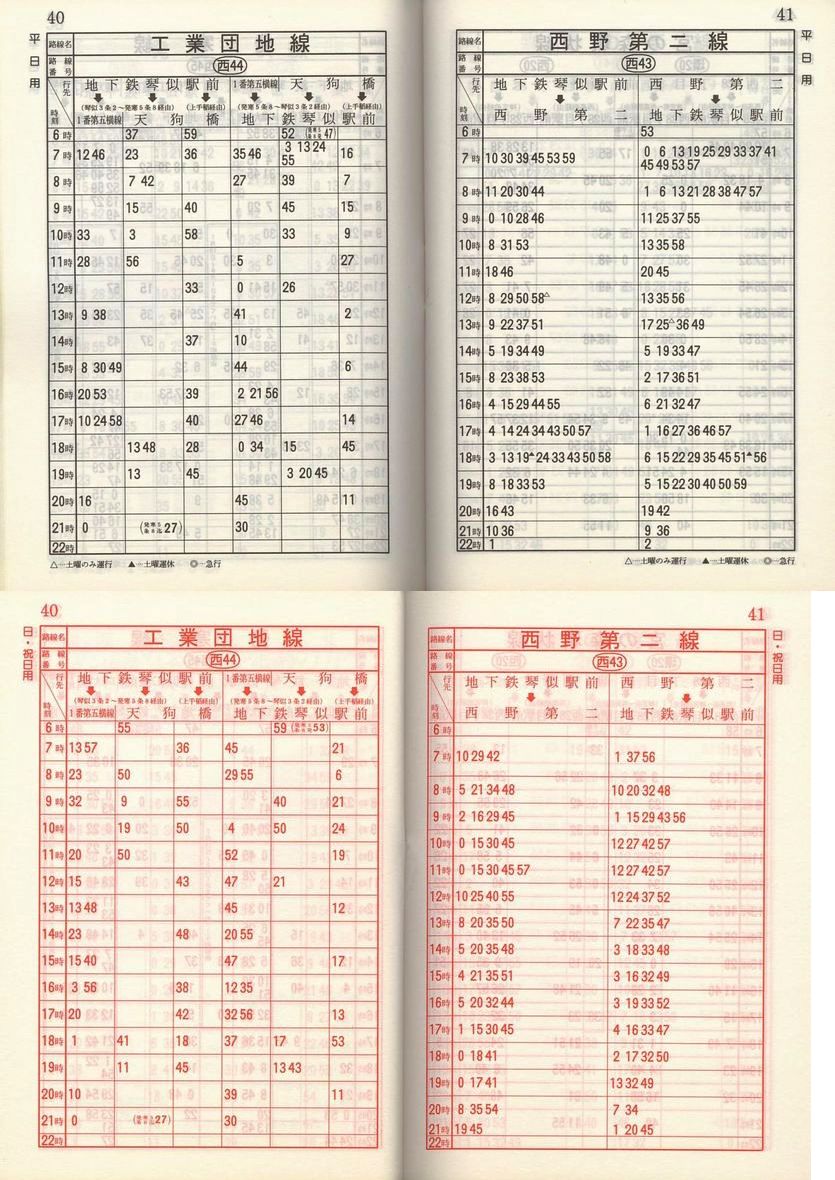 40
平日用
路線名 工業団地線
路線番号 西44
行先 時刻
地下鉄琴似駅前 1番第五横線 天狗橋
(琴似3条2〜発寒5条8経由) (上手稲経由) (発寒5条8〜琴似3条2経由) (上手稲経由)
1番第五横線 天狗橋 地下鉄琴似駅前
6時 37 59 52 47)
7時 12 46 23 36 35 46 3 13 24 55 16
8時 7 42 27 39 7
9時 15 40 7 20 45 15
10時 33 3 58 30 33 9
11時 28 56 5 27
12時 33 0 26
13時 9 38 41 2
14時 37 10
15時 8 30 49 44 6
16時 20 53 39 2 21 56
17時 10 24 58 40 27 46 14
18時 13 48 28 0 34 15 45
19時 13 45 3 20 45
20時 16 45 11
21時 0 27) 30
22時
△…土曜のみ運行 ▲…土曜運休 ◎…急行
41
平日用
路線名 西野第二線
路線番号 西43
行先 時刻
地下鉄琴似駅前 西野第二
西野第二 地下鉄琴似駅前
6時 53
7時 10 30 39 45 53 59 0 6 13 19 25 29 33 37 41
45 49 53 57
8時 11 20 30 44 1 6 13 21 28 38 47 57
9時 0 10 28 46 11 25 37 55
10時 8 31 53 13 35 58
11時 18 46 20 45
12時 8 29 50 58△ 13 35 56
13時 9 22 37 51 17 25△ 36 49
14時 5 19 34 49 5 19 33 47
15時 8 23 38 53 2 17 36 51
16時 4 15 29 44 55 6 21 32 47
17時 4 14 24 34 43 50 57 1 16 27 36 46 57
18時 3 13 19▲ 24 33 43 50 58 6 15 22 29 35 45 51▲ 56
19時 8 18 33 53 5 15 22 30 40 50 59
20時 16 43 19 42
21時 10 36 9 36
22時 1 2
△…土曜のみ運行 ▲…土曜運休 ◎…急行
40
日・祝日用
路線名 工業団地線
路線番号 西44
行先 時刻
地下鉄琴似駅前 1番第五横線 天狗橋
(琴似3条2〜発寒5条8経由) (上手稲経由) (発寒5条8〜琴似3条2経由) (上手稲経由)
1番第五横線 天狗橋 地下鉄琴似駅前
6時 55 59 53)
7時 13 57 36 45 21
8時 23 50 29 55 6
9時 32 9 55 40 21
10時 19 50 4 50 24
11時 20 50 52 19
12時 15 43 47 21
13時 13 48 45 12
14時 23 48 20 55
15時 15 40 47 17
16時 3 56 38 12 35
17時 20 42 32 56 13
18時 1 41 18 37 17 53
19時 11 45 13 43
20時 10 39 11
21時 0 27) 30
22時
41
日・祝日用
路線名 西野第二線
路線番号 西43
行先 時刻
地下鉄琴似駅前 西野第二
西野第二 地下鉄琴似駅前
6時
7時 10 29 42 1 37 56
8時 5 21 34 48 10 20 32 48
9時 2 16 29 45 1 15 29 43 56
10時 0 15 30 45 12 27 42 57
11時 0 15 30 45 57 12 27 42 57
12時 10 25 40 55 12 24 37 52
13時 8 20 35 50 7 22 35 47
14時 5 20 35 48 3 18 33 48
15時 4 21 35 51 3 16 32 49
16時 5 20 32 44 3 19 33 52
17時 1 15 30 45 4 16 33 47
18時 0 18 41 2 17 32 50
19時 0 17 41 13 32 49
20時 8 35 54 7 34
21時 19 45 1 20 45
22時